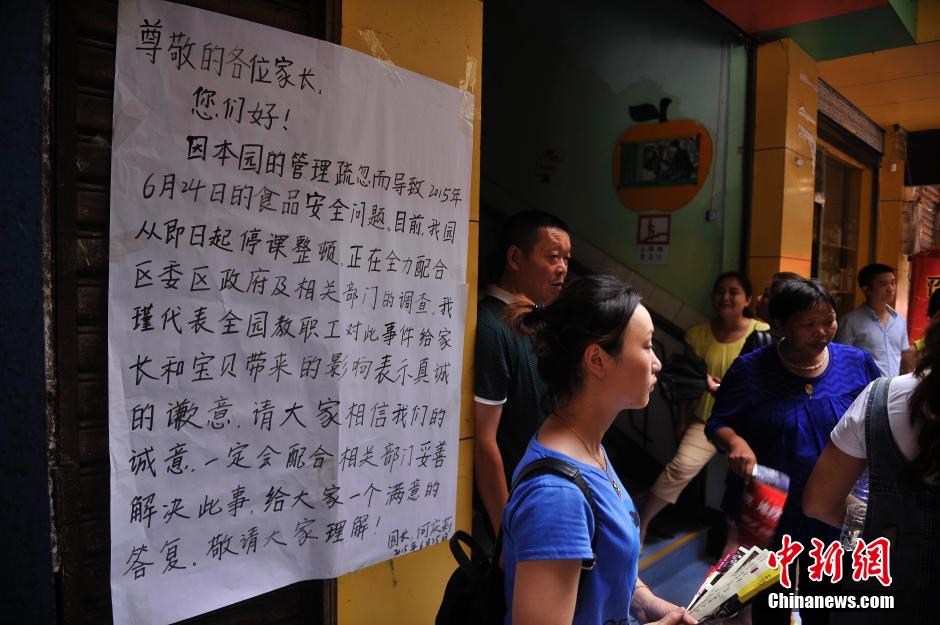 尊敬的各位家长，
您们好！
因本园的管理疏忽而导致2015年
6月24日的食品安全问题。目前，我园
从即日起停课整顿，正在全力配合
区委区政府及相关部门的调查，我
瑾代表全园教职工对此事件给家
长和宝贝带来的影响表示真诚
的谦意，请大家相信我们的
诚意，一定会配合相关部门妥善
解决此事，给大家一个满意的
答复。敬请大家理解！
园长：何
2015年6月25日
中新网
Chinanews.com